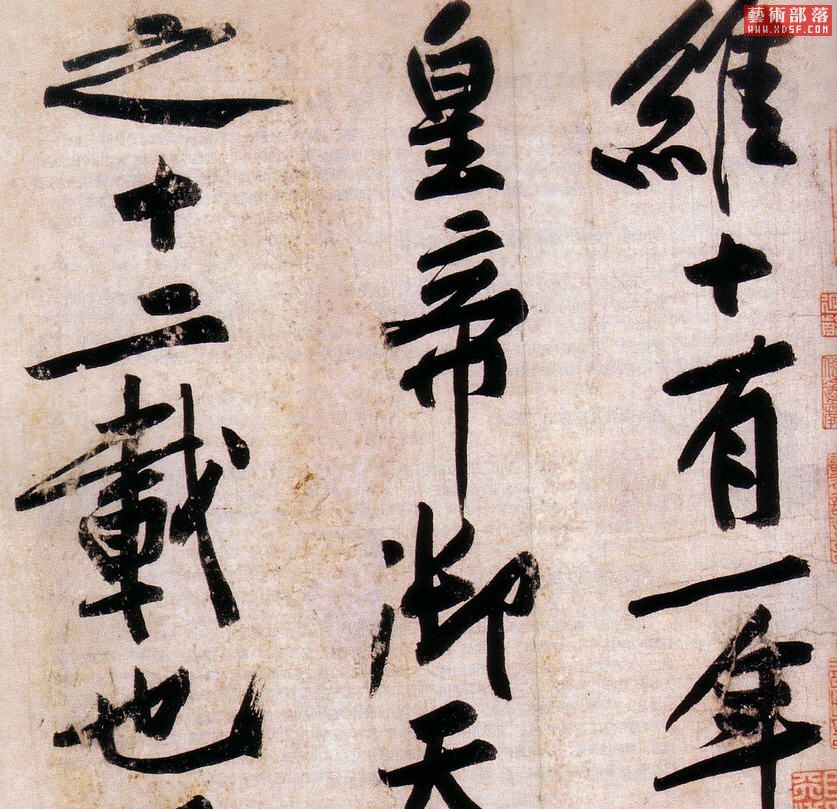 維十有一年
皇帝御天
之十二載也
藝術部落
WWW.XDSF.COM